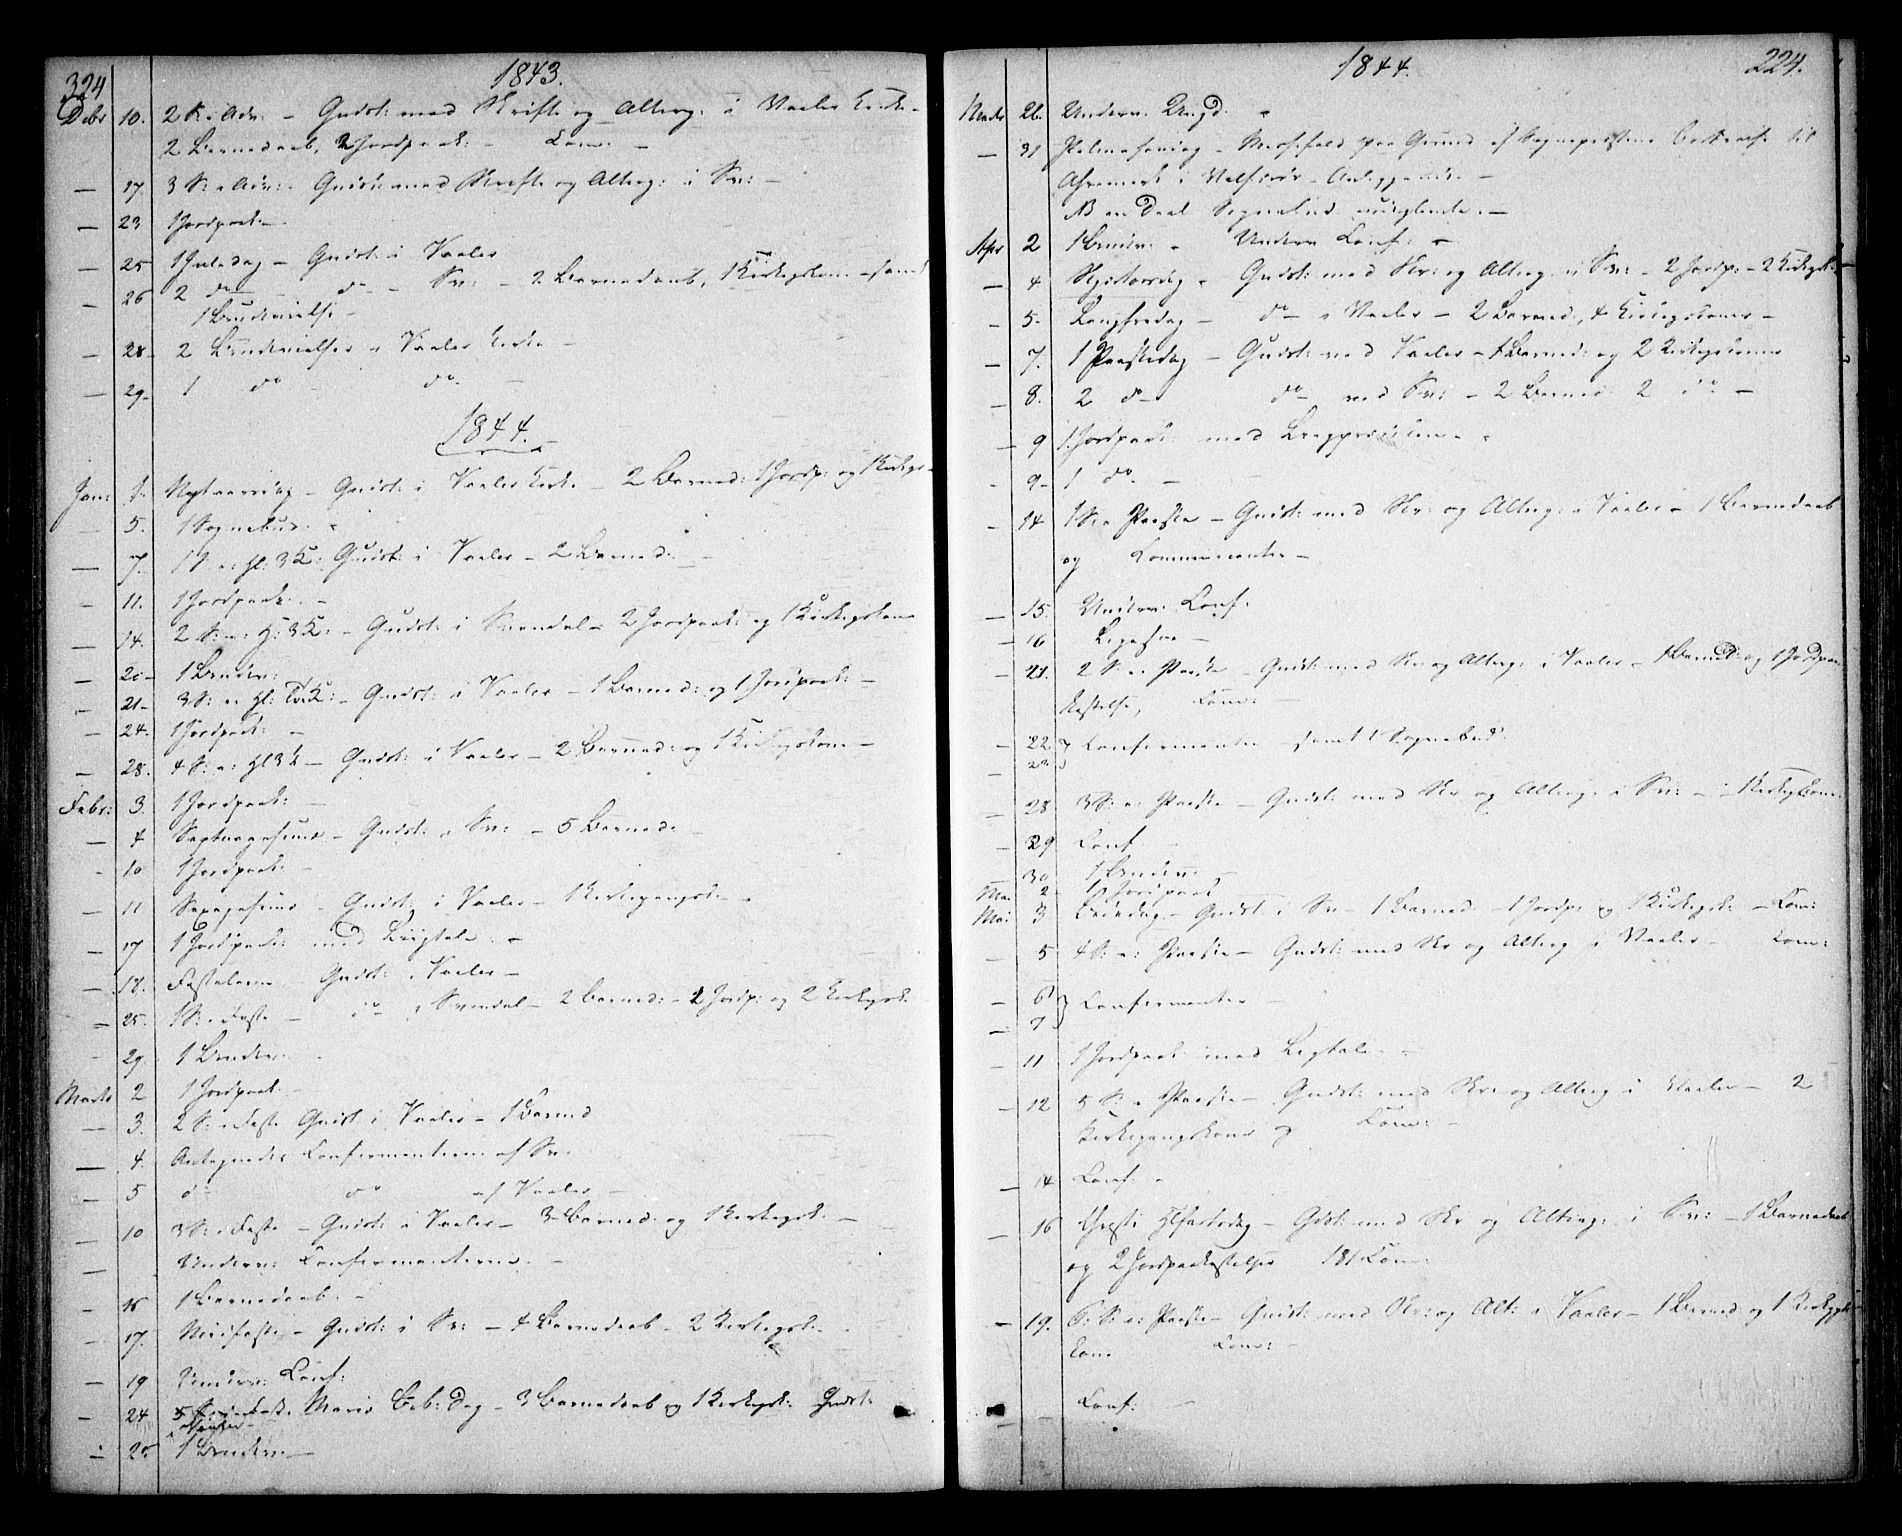 324
1843.
Debr 10. 2 S. i Adv: – Gudst: med Skrifte og Alterg: i Vaaler Kirke –
2 Barnedaab, 2 Jordpaak: – Com: –
– 17. 3 S. i Adv: – Gudst: med Skrifte og Alterg: i Sv: –
– 23 1 Jordpaak –
– 25 1 Juledag – Gudst: i Vaaler
– 26 2 do – do – Sv: – 2 Barnedaab, 1 Kirkegskone – samt
1 Brudevielse –
– 28 – 2 Brudevielser i Vaaler Kirke –
– 29 – 1 do – do. –
1844.
Jan: 1. Nytaarsdag – Gudst: i Vaaler Kirke – 2 Barned: 1 Jordp: og 1 Kirkegs –
– 5. 1 Sognebud. –
– 7. 1 S. e: Hl: 3 K: Gudst: i Vaaler – 2 Barned: –
– 11. 1 Jordpaak: –
– 14. 2 S: e: H: 3 K: – Gudst: i Svendal – 2 Jordpaak: og 1 Kirkegskone
– 20 – 1 Brudev:
– 21 – 3 S: e: Hl: 3 K: – Gudst: i Vaaler – 1 Barned: og 1 Jordpaak: –
– 24. 1 Jordpaak: –
– 28. 4 S: e: Hl 3 K – Gudst: i Vaaler – 2 Barned: og 1 Kirkegskone –
Febr: 3. 1 Jordpaak: –
– 4 Septuagesima – Gudst: i Sv: – 5 Barned: –
– 10 1 Jordpaak: –
– 11 Sexagesima – Gudst: i Vaaler – 1 Kirkegangsk: –
– 17 1 Jordpaak: med Liigtale: –
– 18. Fastelavn – Gudst: i Vaaler –
– 25. 1 S: i Faste – do i Svendal – 2 Barned: – 2 Jordp: og 2 Kirkegsk:
29 1 Brudev:
Marts 2 1 Jordpaak: –
– 3. 2 S: i Faste Gudst i Vaaler – 1 Barned
– 4. Antegnedes Confirmanterne af Sv:
– 5 do do af Vaaler –
– 10 3 S: i Faste – Gudst: i Vaaler – 3 Barned: og 1 Kirkegsk: –
– Underv: Confirmanterne. –
– 16 1 Barnedaab: –
– 17. Midfaste – Gudst: i Sv: – 4 Barnedaab – 2 Kirkegsk: –
– 19 Underv: Conf:
– 24 Mariæ Beb: Dag – 3 Barnedaab og 1 Kirkegsk: Gudst:
i Vaaler –
– 25 1 Brudev: –
1844.
224.
Marts 26. Underv: Ungd. –
– 31 Palmesøndag – Messefald paa Grund af Sognepræstens Bortreise til
–
NB en Deel Sognebud –
Apr 2 1 Brudev: – Underv Conf: –
– 4 Skjertorsdag – Gudst: med Skr: og Alterg: i Sv: – 2 Jordp: – 2 Kirkegsk: –
– 5 – Langfredag – do – i Vaaler – 2 Barned:, 4 Kirkegskoner –
– 7. 1 Paaskedag – Gudst: ved Vaaler – 1 Barned: og 2 Kirkegskoner
– 8. 2 do – do ved Sv: – 2 Barned 2 do –
– 9 1 Jordpaak: med –
– 9 – 1 do. –
– 14 1 S: e Paaske – Gudst: med Skr: og Alterg: i Vaaler – 1 Barnedaab
og Communicanter –
– 15. Underv: Conf:
– 16 Ligesaa –
– 21. 2 S: e: Paaske – Gudst: med Skr: og Alterg: i Vaaler – 1 Barned: og 1 Jordpaa
kastelse, Com: –
– 22 Confirmanter samt 1 Sognebud
– 23
– 28 3 S: e: Paaske – Gudst: med Skr og Alterg: i Sv: – 1 Kirkegkone
29 Conf –
30 1 Brudev: –
Mai 2 – 1 Jordpaak
Mai 3 Bededag – Gudst: i Sv – 1 Barned – 1 Jordp: og 1 Kirkegsk: – Com:
– 5 4 S: e: Paaske – Gudst: med Skr og Alterg i Vaaler – Com:
– 6 Confirmanter –
– 7
– 11 1 Jordpaak: med Ligtale –
– 12 5 S: e Paaske – Gudst: med Skr: og Alterg i Vaaler – 2
Kirkegangskoner og Com: –
– 14 Conf: –
– 16 Christi Hfartsdag – Gdst: med Skr og Alterg: i Sv: – 1 Barnedaab
og 2 Jordpaakastelser 181 Com:
– 19. 6: S: e: Paaske – Gudst: med Skr: og Alt: i Vaaler – 1 Barned: og 1 Kirkegs
kone Com: –
Conf: –